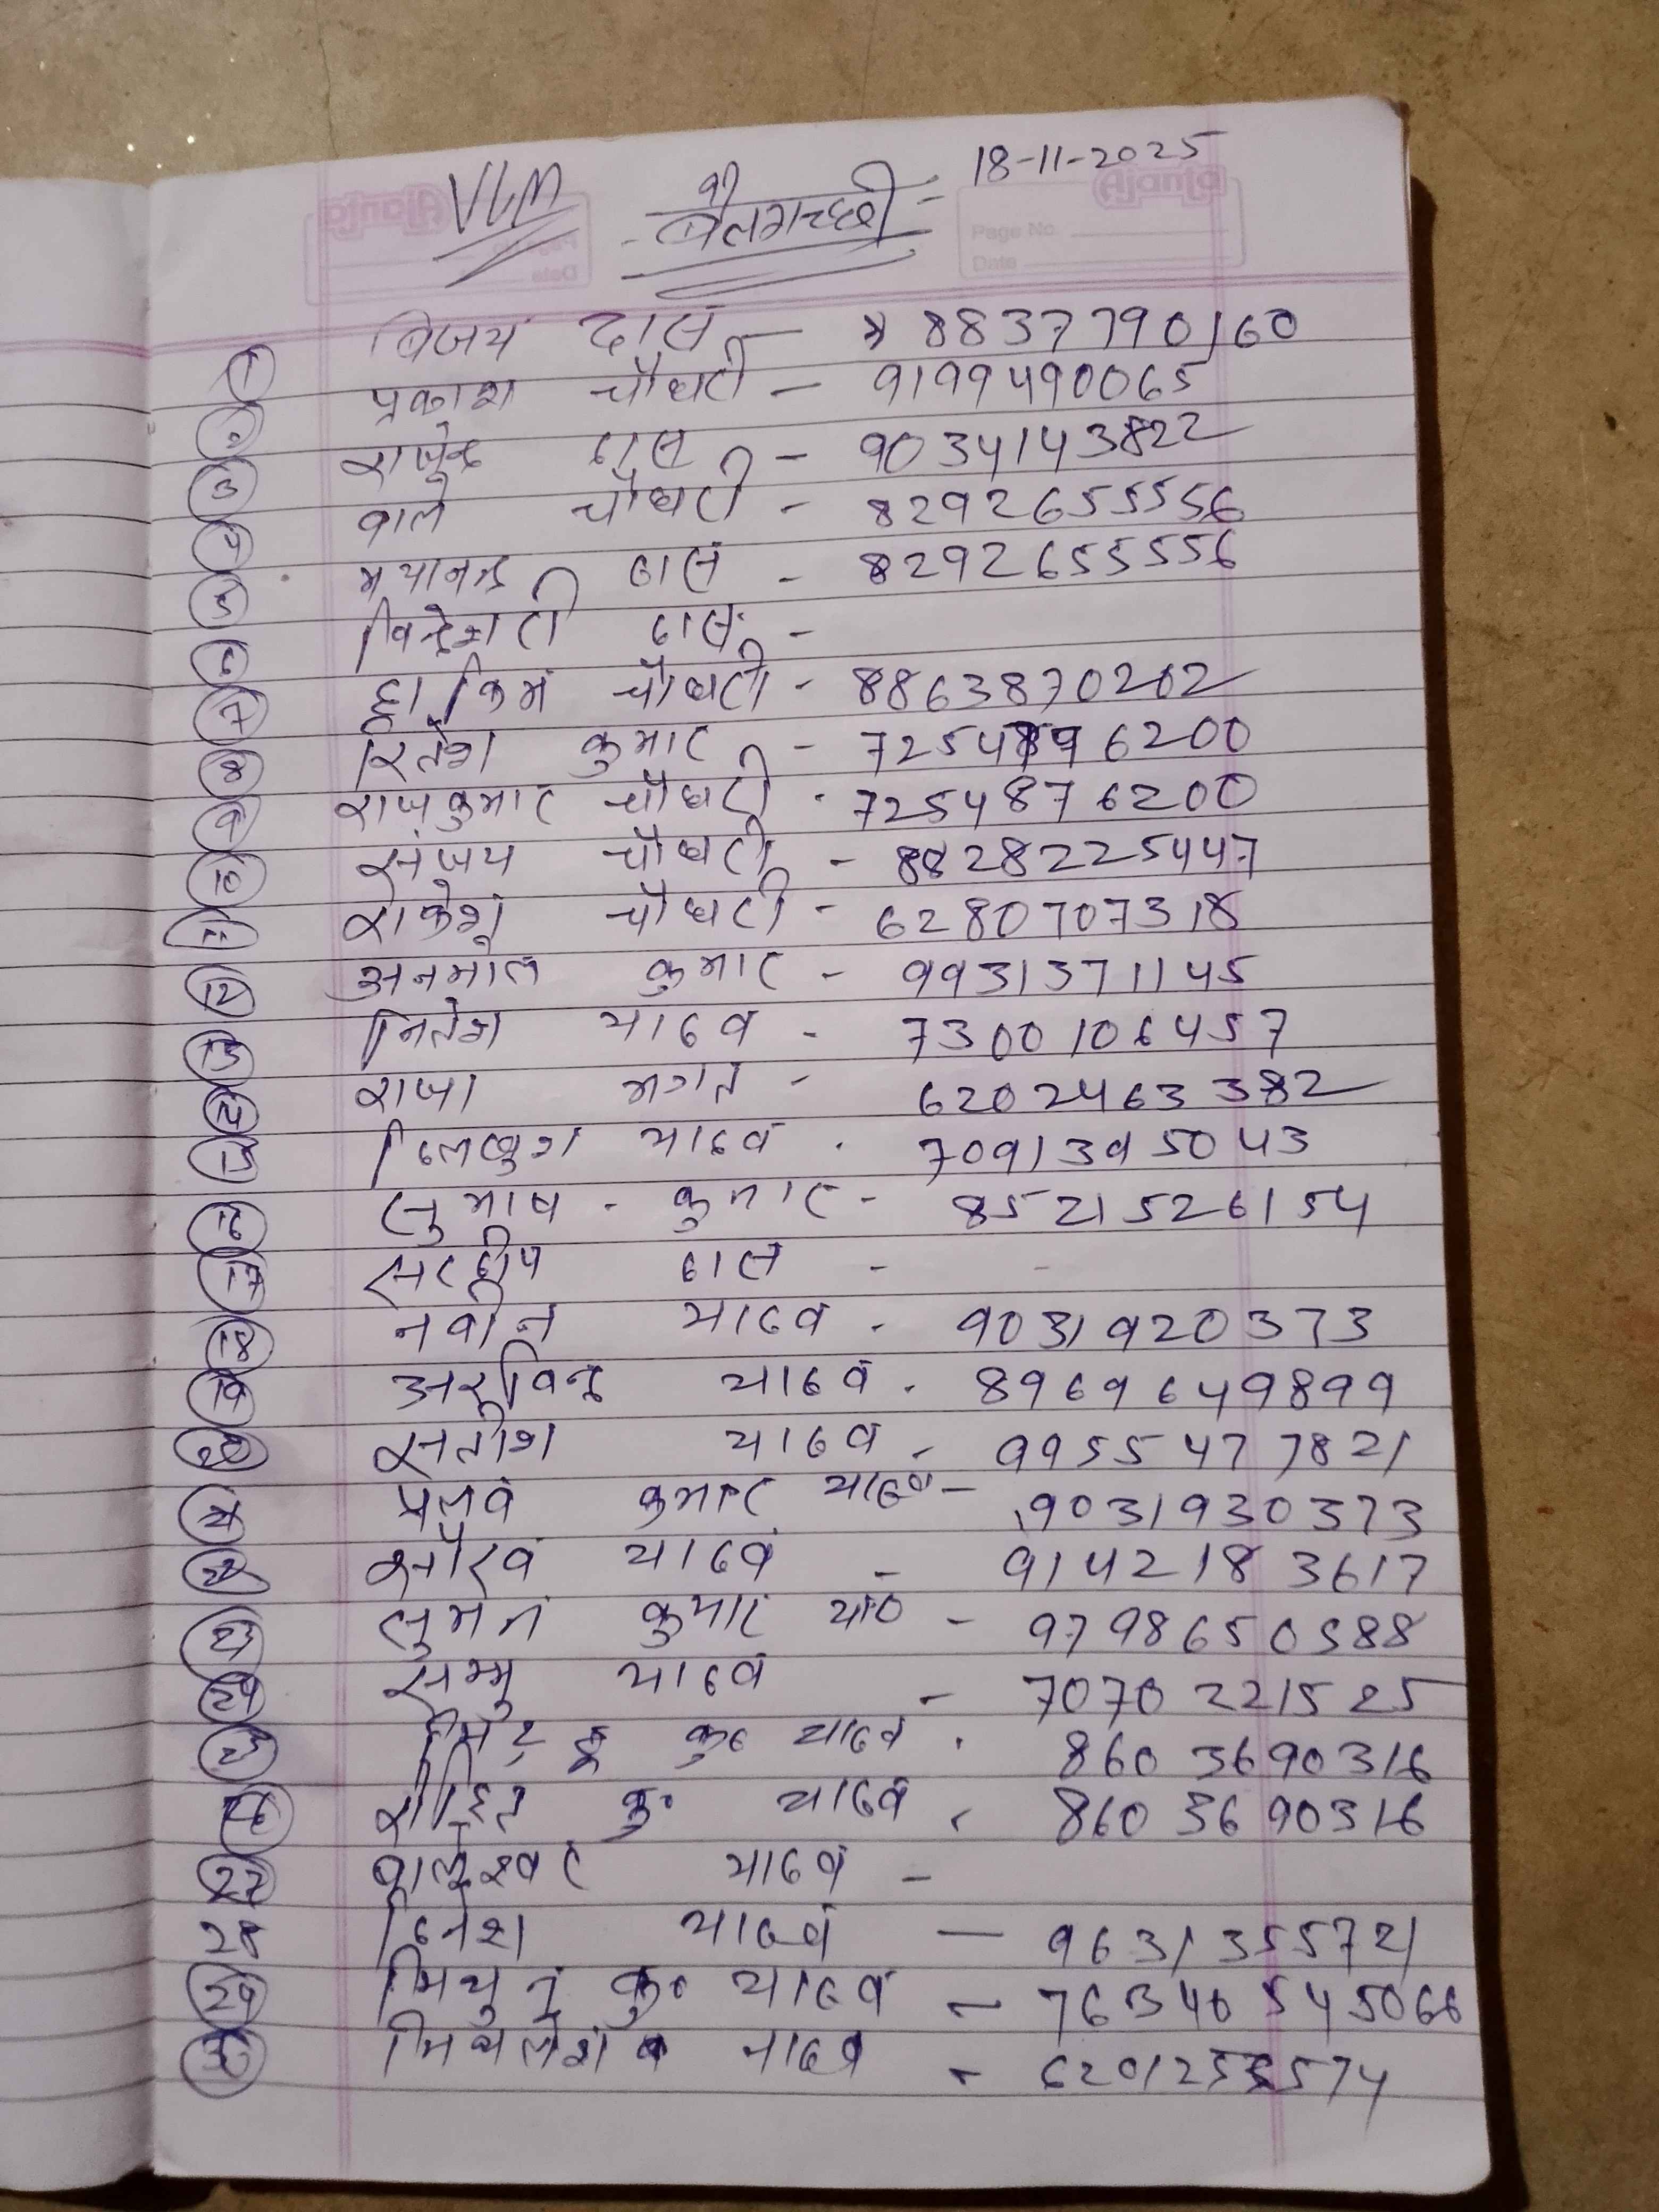 18-11-2025
VLM बेलगच्छी
Ajanta
Page No
Date
1 बिजय दास - 8837790160
2 प्रकाश चौधरी - 9199490065
3 राजेन्द्र दास - 9034143822
4 वाले चौधरी - 8292655556
5 मयानन्द दास - 8292655556
6 विन्देशरी दास -
7 हाकिम चौधरी - 8863870202
8 रितेश कुमार - 7254896200
9 राजकुमार चौधरी - 7254876200
10 संजय चौधरी - 8828225447
11 राकेश चौधरी - 6280707318
12 अनमोल कुमार - 9931371145
13 नितेश यादव - 7300106457
14 राजा भगत - 6202463382
15 दिलखुश यादव - 7091395043
16 सुभाष - कुमार - 8521526154
17 सदीप दास -
18 नवीन यादव - 9031920373
19 अरविन्द यादव - 8969649899
20 सतीश यादव - 9955477821
21 प्रलव कुमार यादव - 9031930373
22 सौरव यादव - 9142183617
23 सुमन कुमार या० - 9798650588
24 सम्भु यादव - 7070221525
25 कु० यादव - 8603690316
26 रोहित कु० यादव - 8603690316
27 वालेश्वर यादव -
28 दिनेश यादव - 9631355721
29 मिथुन कु० यादव - 76340545066
30 मिथलेश यादव - 620125